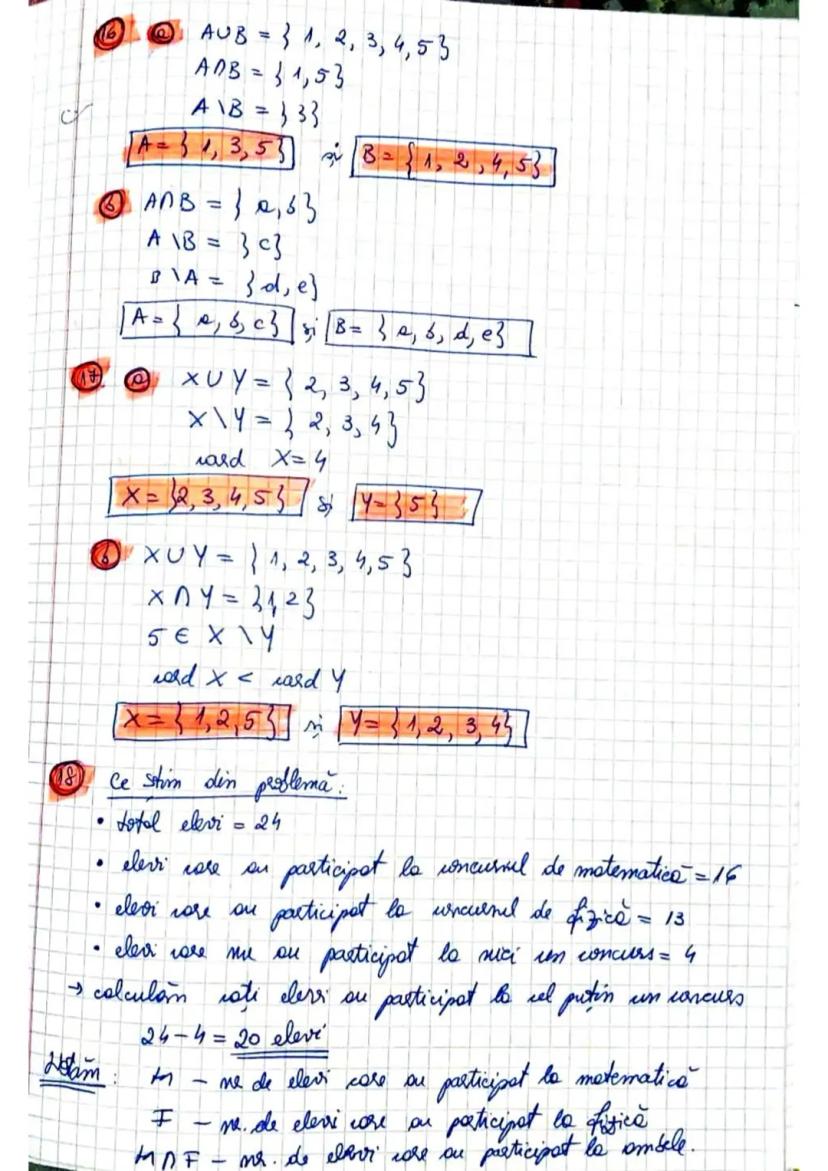 16 a A∪B = { 1, 2, 3, 4, 5}
A∩B = { 1, 5}
A \ B = { 3}
A = { 1, 3, 5} și B = { 1, 2, 4, 5}
b A∩B = { a, b}
A \ B = { c}
B \ A = {d, e}
A = { a, b, c} și B = { a, b, d, e}
17 a X ∪ Y = { 2, 3, 4, 5}
X \ Y = { 2, 3, 4}
card X = 4
X = {2, 3, 4, 5} și Y = { 5}
b X ∪ Y = { 1, 2, 3, 4, 5}
X ∩ Y = {1, 2}
5 ∈ X \ Y
card X < card Y
X = { 1, 2, 5} și Y = { 1, 2, 3, 4}
18 Ce știm din problemă:
• total elevi = 24
• elevi care au participat la concursul de matematică = 16
• elevi care au participat la concursul de fizică = 13
• elevi care nu au participat la nici un concurs = 4
→ calculăm câți elevi au participat la cel puțin un concurs
24 - 4 = 20 elevi
Notăm : M - nr de elevi care au participat la matematică
F - nr. de elevi care au participat la fizică
M ∩ F - nr. de elevi care au participat la ambele.